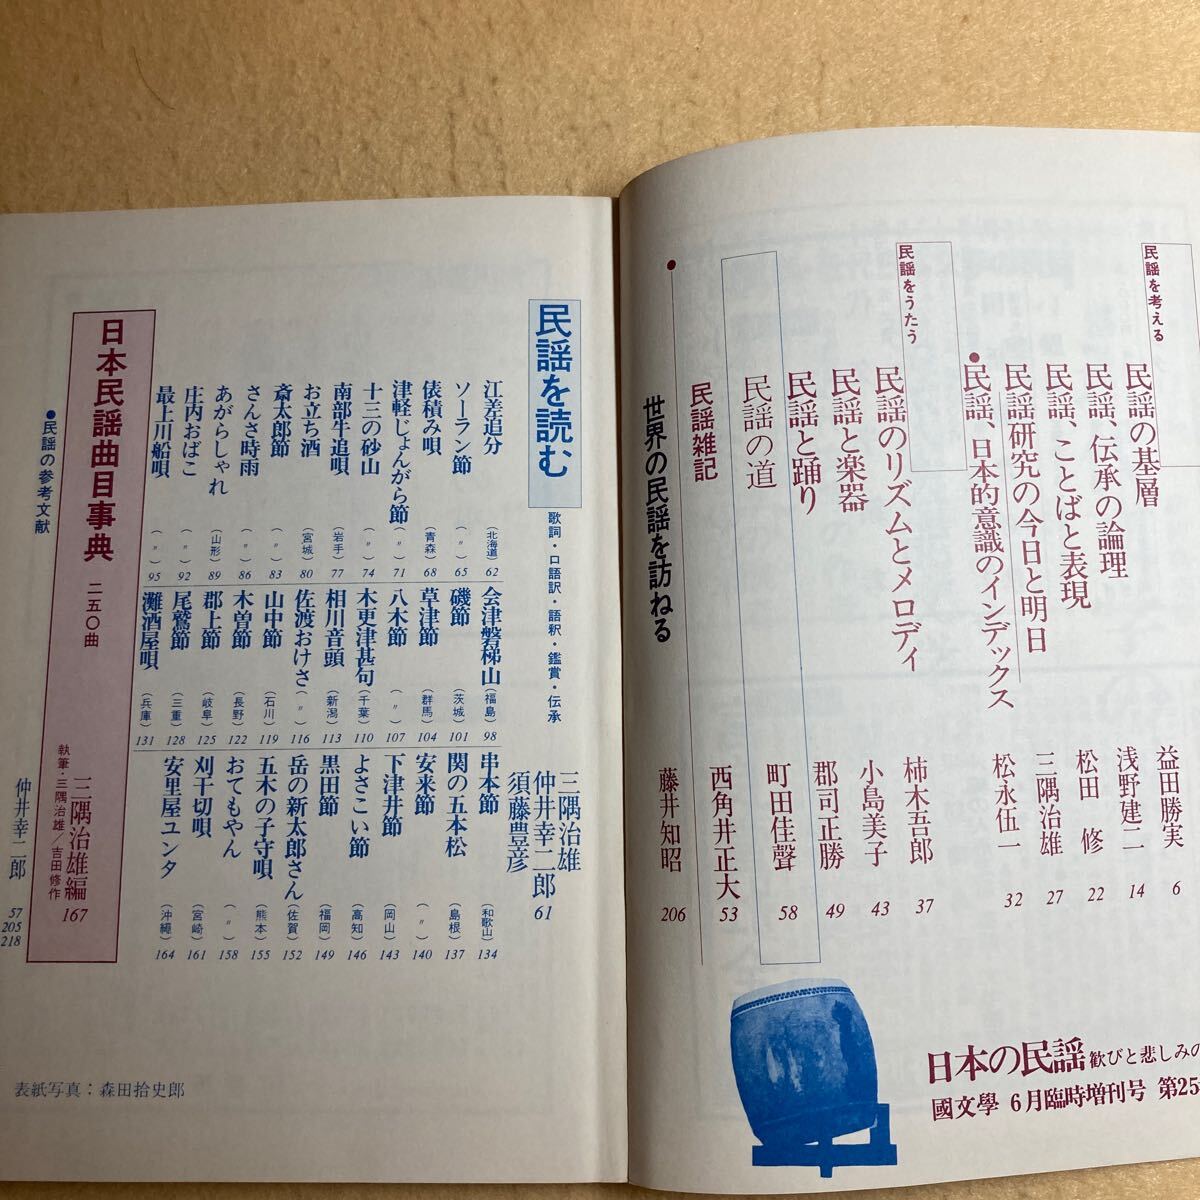 民謡を考える
民謡の基層 益田勝実 6
民謡、伝承の論理 浅野建二 14
民謡、ことばと表現 松田 修 22
民謡研究の今日と明日 三隅治雄 27
●民謡、日本的意識のインデックス 松永伍一 32
民謡をうたう
民謡のリズムとメロディ 柿木吾郎 37
民謡と楽器 小島美子 43
民謡と踊り 郡司正勝 49
民謡の道 町田佳聲 58
民謡雑記 西角井正大 53
●世界の民謡を訪ねる 藤井知昭 206
日本の民謡 歓びと悲しみの
國文學 6月臨時増刊号 第25
民謡を読む 歌詞・口語訳・語釈・鑑賞・伝承
三隅治雄
仲井幸二郎 61
須藤豊彦
江差追分 (北海道) 62
ソーラン節 (〃) 65
俵積み唄 (青森) 68
津軽じょんがら節 (〃) 71
十三の砂山 (〃) 74
南部牛追唄 (岩手) 77
お立ち酒 (宮城) 80
斎太郎節 (〃) 83
さんさ時雨 (〃) 86
あがらしゃれ (山形) 89
庄内おばこ (〃) 92
最上川船唄 (〃) 95
会津磐梯山 (福島) 98
磯節 (茨城) 101
草津節 (群馬) 104
八木節 (〃) 107
木更津甚句 (千葉) 110
相川音頭 (新潟) 113
佐渡おけさ (〃) 116
山中節 (石川) 119
木曽節 (長野) 122
郡上節 (岐阜) 125
尾鷲節 (三重) 128
灘酒屋唄 (兵庫) 131
串本節 (和歌山) 134
関の五本松 (島根) 137
安来節 (〃) 140
下津井節 (岡山) 143
よさこい節 (高知) 146
黒田節 (福岡) 149
岳の新太郎さん (佐賀) 152
五木の子守唄 (熊本) 155
おてもやん (〃) 158
刈干切唄 (宮崎) 161
安里屋ユンタ (沖縄) 164
日本民謡曲目事典 二五〇曲
三隅治雄編 167
執筆・三隅治雄/吉田修作
●民謡の参考文献
仲井幸二郎 57
205
218
表紙写真：森田拾史郎